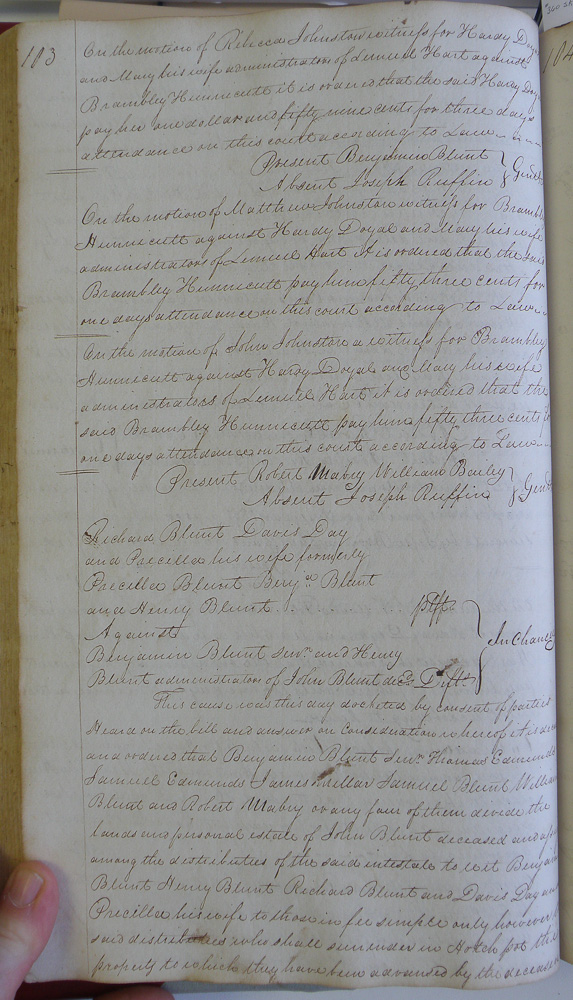 103
On the motion of Rebecca Johnston witness for Hardy Doyal
and Mary his wife administrators of Lemuel Hart against
Brambley Hunnicutt it is ordered that the said Hardy Doyal
pay her one dollar and fifty nine cents for three days
attendance on this court according to Law
Present Benjamin Blunt
Absent Joseph Ruffin } Gent
On the motion of Matthew Johnston witness for Brambley
Hunnicutt against Hardy Doyal and Mary his wife
administrators of Lemuel Hart it is ordered that the said
Brambley Hunnicutt pay him fifty three cents for
one days attendance on this court according to Law
On the motion of John Johnston a witness for Brambley
Hunnicutt against Hardy Doyal and Mary his wife
administrators of Lemuel Hart it is ordered that the
said Brambley Hunnicutt pay him fifty three cents
one days attendance on this court according to Law
Present Robert Mabry William Bailey
Absent Joseph Ruffin } Gent
Richard Blunt Davis Day
and Precilla his wife formerly
Precilla Blunt Benj.n Blunt
and Henry Blunt ptffs
Against
Benjamin Blunt Senr. and Henry } In Chance
Blunt administrators of John Blunt decd. Defts
This cause was this day docketed by consent of parties
Heard on the bill and answer on Consideration whereof it is
and ordered that Benjamin Blunt Senr. Thomas Edmunds
Samuel Edmunds James Samuel Blunt William
Blunt and Robert Mabry or any four of them divide the
lands and personal estate of John Blunt deceased
among the distributees of the said intestate to wit Benjamin
Blunt Henry Blunt Richard Blunt and Davis Day and
Precilla his wife to those in fee simple only however
said distributees who shall surrender in Hotch pot the
property to which they have been advanced by the deceased